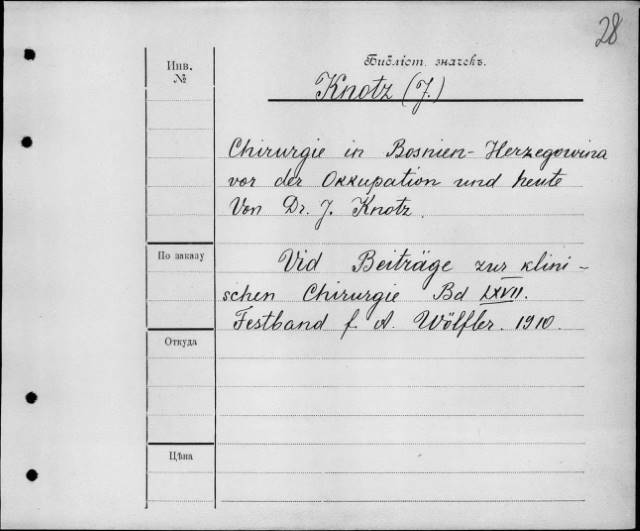 28
Инв.
№
Библіот. значекъ.
Knotz (J.)
Chirurgie in Bosnien-Herzegowina
vor der Okkupation und heute
Von Dr. J. Knotz.
По заказу
Vid Beiträge zur klini-
schen Chirurgie Bd LXVII.
Festband f. A. Wölfler. 1910.
Откуда
Цѣна